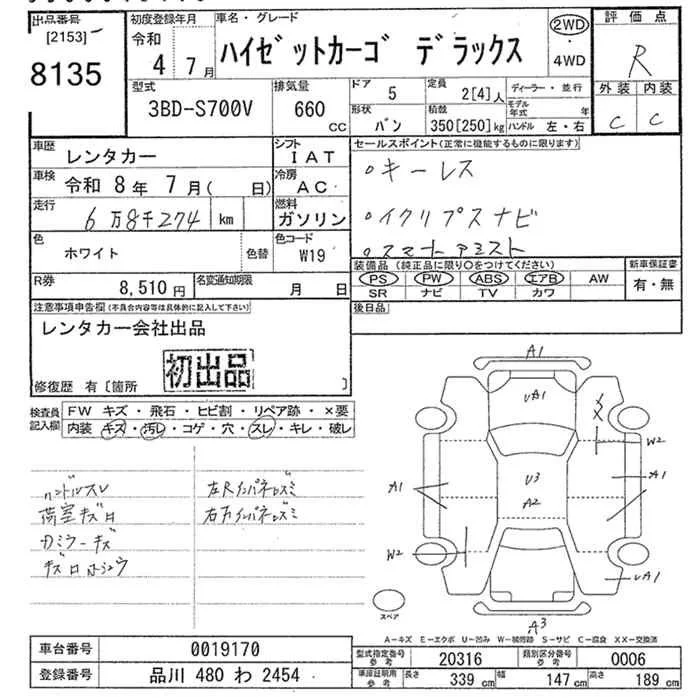 出品番号
[2153]
8135
初度登録年月
令和
4 7月
車名・グレード
ハイゼットカーゴ デラックス
2WD
・
4WD
評価点
R
外装 内装
C C
型式
3BD-S700V
排気量
660
CC
ドア
5
定員
2[4]人
ディーラー・並行
形状
バン
積載
350[250]kg
モデル年式 年
ハンドル 左・右
車歴
レンタカー
シフト
IAT
車検
令和 8年 7月( 日)
冷房
AC
走行
6万8千274 km
燃料
ガソリン
色
ホワイト
色替
色コード
W19
R券
8,510円
名変通知期限
月 日
セールスポイント(正常に機能するものに限ります)
○キーレス
○イクリプスナビ
○スマートアシスト
装備品 (純正品に限り○をつけてください)
PS PW ABS エアB AW
SR ナビ TV カワ
新車保証書
有・無
後日品
注意事項申告欄(不具合内容等は具体的に記入して下さい)
レンタカー会社出品
初出品
修復歴 有〔箇所 〕
検査員
記入欄
FW キズ・飛石・ヒビ割・リペア跡・×要
内装 キズ・汚レ・コゲ・穴・スレ・キレ・破レ
ハンドルスレ
荷室キズ凹
左Rインパネレズミ
右Fインパネレズミ
A1
UA1
XX
W2
A1
U3
A2
A1
W2
UA1
A3
スペア
A−キズ E−エクボ U−凹み W−補修跡 S−サビ C−腐食 XX−交換済
車台番号
0019170
登録番号
品川 480 わ 2454
型式指定番号
参考
20316
類別区分番号
参考
0006
車庫証明用
参考
長さ 339 cm 幅 147 cm 高さ 189 cm